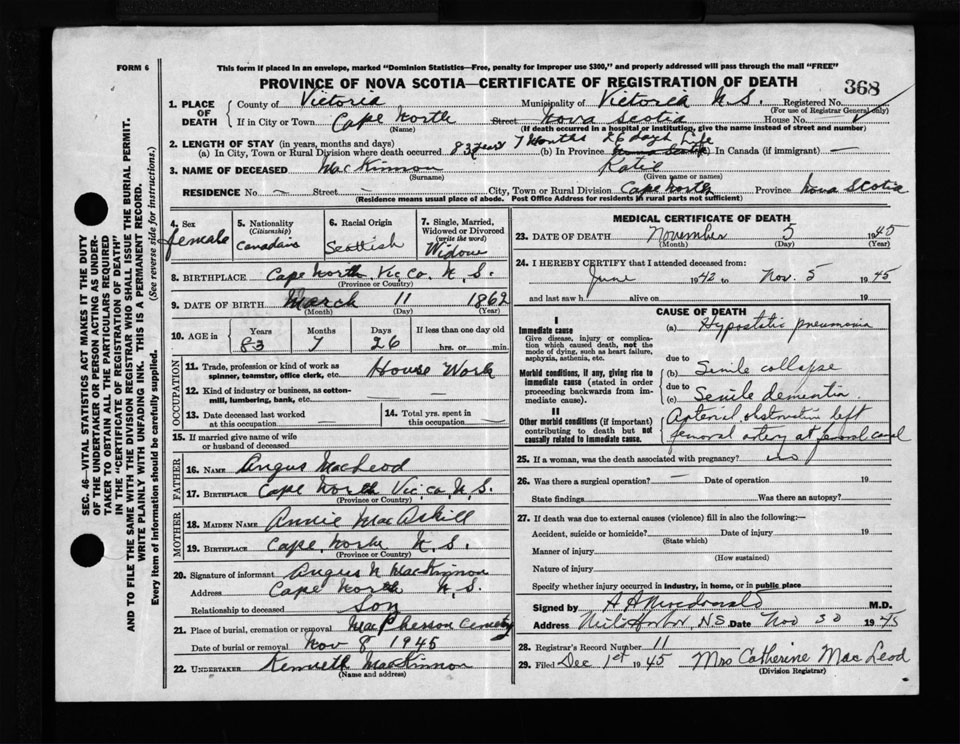 FORM 6
This form if placed in an envelope, marked "Dominion Statistics—Free, penalty for improper use $300," and properly addressed will pass through the mail "FREE"
PROVINCE OF NOVA SCOTIA—CERTIFICATE OF REGISTRATION OF DEATH
368
1. PLACE OF DEATH
County of Victoria Municipality of Victoria N.S. Registered No.
(For use of Registrar General only)
If in City or Town Cape North Street Nova Scotia House No.
(Name) (If death occurred in a hospital or institution, give the name instead of street and number)
2. LENGTH OF STAY (in years, months and days)
(a) In City, Town or Rural Division where death occurred 83 years 7 Months 26 days (b) In Province Life Nova Scotia In Canada (if immigrant) —
3. NAME OF DECEASED MacKinnon Katie
(Surname) (Given name or names)
RESIDENCE No. — Street — City, Town or Rural Division Cape North Province Nova Scotia
(Residence means usual place of abode. Post Office Address for residents in rural parts not sufficient)
4. Sex female
5. Nationality (Citizenship) Canadian
6. Racial Origin Scottish
7. Single, Married, Widowed or Divorced (write the word) Widow
8. BIRTHPLACE Cape North Vic. Co. N.S.
(Province or Country)
9. DATE OF BIRTH March 11 1862
(Month) (Day) (Year)
10. AGE in Years Months Days If less than one day old
83 7 26 hrs. or min.
OCCUPATION
11. Trade, profession or kind of work as spinner, teamster, office clerk, etc. House Work
12. Kind of industry or business, as cotton-mill, lumbering, bank, etc. — —
13. Date deceased last worked at this occupation —
14. Total yrs. spent in this occupation —
15. If married give name of wife or husband of deceased
FATHER
16. NAME Angus MacLeod
17. BIRTHPLACE Cape North Vic. Co. N.S.
(Province or Country)
MOTHER
18. MAIDEN NAME Annie MacAskill
19. BIRTHPLACE Cape North N.S.
(Province or Country)
20. Signature of informant Angus N MacKinnon
Address Cape North N.S.
Relationship to deceased Son
21. Place of burial, cremation or removal MacPherson Cemetry
Date of burial or removal Nov 8 1945
22. UNDERTAKER Kenneth MacKinnon
(Name and address)
MEDICAL CERTIFICATE OF DEATH
23. DATE OF DEATH November 5 1945
(Month) (Day) (Year)
24. I HEREBY CERTIFY that I attended deceased from:
June 1942 to Nov. 5 1945
and last saw h alive on 19
CAUSE OF DEATH
I
Immediate cause
Give disease, injury or complication which caused death, not the mode of dying, such as heart failure, asphyxia, asthenia, etc.
(a) Hypostatic pneumonia
due to
Morbid conditions, if any, giving rise to immediate cause (stated in order proceeding backwards from immediate cause).
(b) Senile collapse
due to
(c) Senile dementia
II
Other morbid conditions (if important) contributing to death but not causally related to immediate cause.
Arterial obstruction left
femoral artery at femoral canal
25. If a woman, was the death associated with pregnancy? no
26. Was there a surgical operation? — Date of operation 19
State findings Was there an autopsy?
27. If death was due to external causes (violence) fill in also the following:—
Accident, suicide or homicide? Date of injury 19
(State which)
Manner of injury
(How sustained)
Nature of injury
Specify whether injury occurred in industry, in home, or in public place
Signed by A A Macdonald M.D.
Address Neil's Harbor, N.S. Date Nov 30 1945
28. Registrar's Record Number 11
29. Filed Dec 1st 1945 Mrs Catherine MacLeod
(Division Registrar)
SEC. 46—VITAL STATISTICS ACT MAKES IT THE DUTY
OF THE UNDERTAKER OR PERSON ACTING AS UNDER-
TAKER TO OBTAIN ALL THE PARTICULARS REQUIRED
IN THE "CERTIFICATE OF REGISTRATION OF DEATH"
AND TO FILE THE SAME WITH THE DIVISION REGISTRAR WHO SHALL ISSUE THE BURIAL PERMIT.
WRITE PLAINLY WITH UNFADING INK. THIS IS A PERMANENT RECORD.
Every item of information should be carefully supplied. (See reverse side for instructions.)